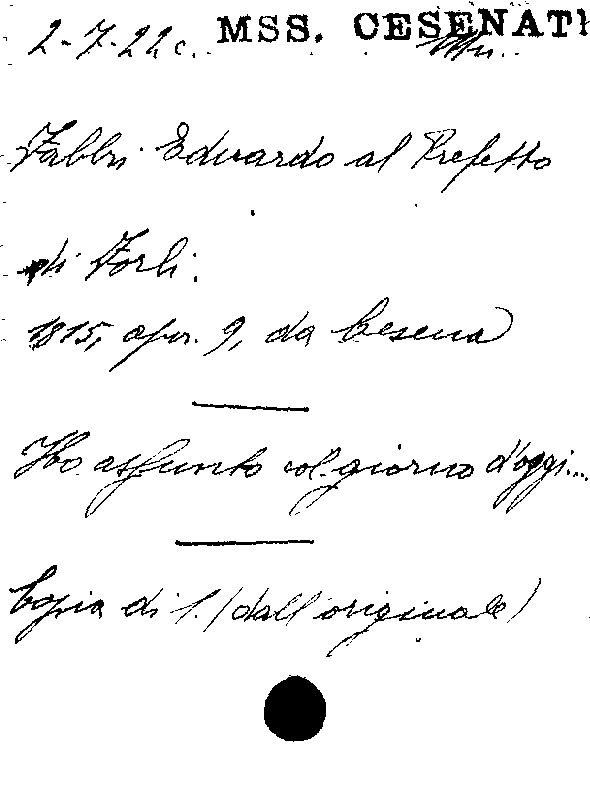 2-7-22 c. MSS. CESENATI
Fabbri Eduardo al Prefetto
di Forlì.
1815, apr. 9, da Cesena
Ho assunto col giorno d'oggi...
Copia di l. (dall'originale)